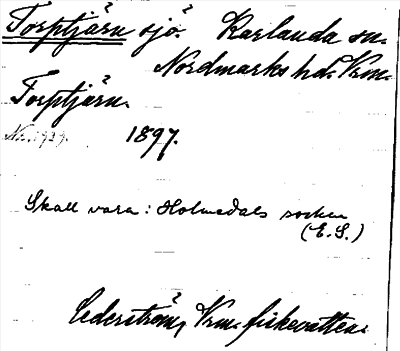 Torptjärn sjö Karlanda sn.
Nordmarks hd. Vrm.
Torptjärn.
1897.
Skall vara: Holmedals socken
(E.S.)
Cederström, Vrm. fiskevatten.